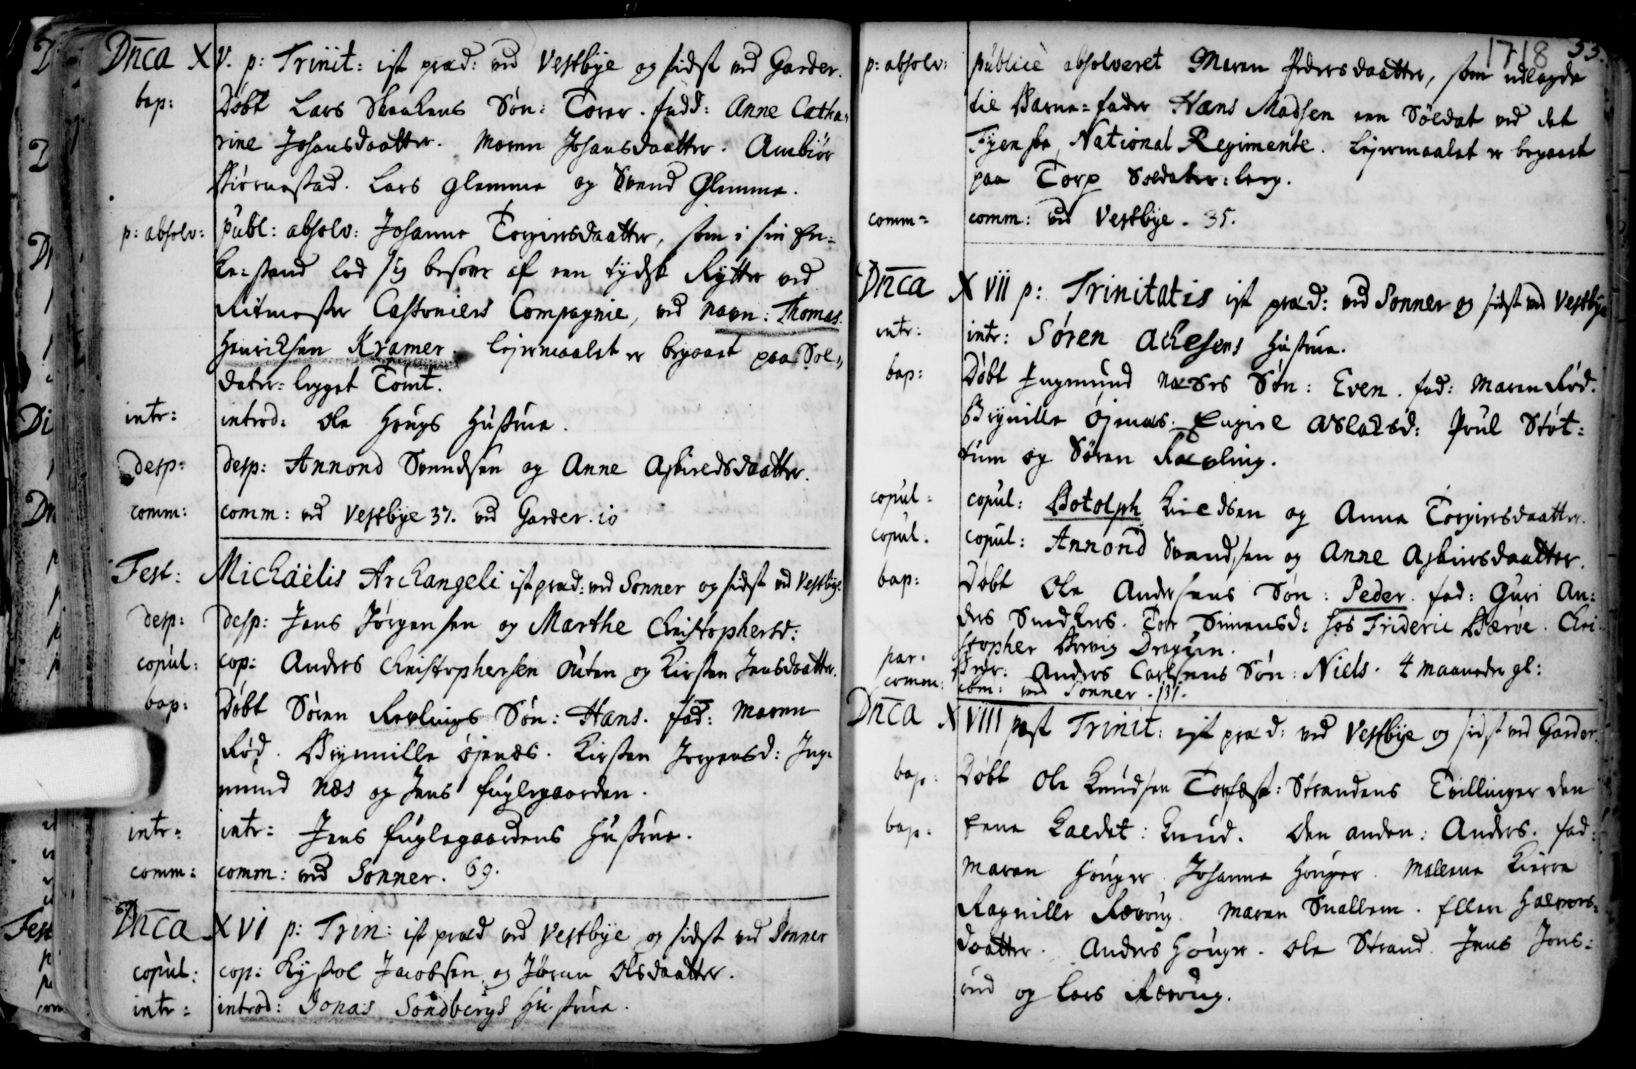 Dn̄ca XV. p: Trinit: ist præd: ved Vestbÿe og sidst ved Garder.
bap: Døbt Lars Skakens Søn: Torer. fadd: Anne Catha-
rine Johansdaatter. Maren Johansdaatter. Ambiør
Biørnestad. Lars Glemme og Svend Glemme.
p: absolv: publ: absolv: Johanne Torgiersdaatter, som i sin En-
ke-stand lod sig besove af een tydsk Rÿtter ved
Ritmester Castoniers Compagnie, ved navn: Thomas
Henricksen Kramer. Lejermaalet er begaaet paa Sol-
dater-legget Tømt.
intr: introd: Ole Hougs Hustrue.
desp: desp: Annond Svendsen og Anne Asbiredsdaatter.
comm: comm: ved Vestbÿe 37. ved Garder. 10
Fest: Michaëlis Archangeli ist præd: ved Sonner og sidst ved Vestbÿe
desp: desp: Jens Jørgensen og Marthe Christophersd:
copul: cop: Anders Christophersen Outen og Kirsten Jensdaatter.
bap: Døbt Søren Ravlings Søn: Hans. fad: Maren
Rød. Brynnille Øjenæs. Kirsten Jørgensd: Ing-
mund Næs og Jens fuglegaarden.
intr: intr: Jens fuglegaardens Hustrue.
comm: comm: ved Sonner. 69.
Dn̄ca XVI p: Trin: ist præd ved Vestbÿe og sidst ved Sonner
copul: cop: Kÿstol Jacobsen og Jøran Olsdaatter.
intr: introd: Jonas Søndbergs Hustrue.
1718 53.
p: absolv: publicè absolveret Maren Pedersdaatter, som udlagde
til Barne-fader Hans Madsen een Soldat ved det
Fyenske National Regimente. Lejermaalet er begaaet
paa Torp Soldater-leeg.
comm: comm: ved Vestbÿe. 35.
Dn̄ca XVII p: Trinitatis ist præd: ved Sonner og sidst ved Vestbÿe
intr: intr: Søren Achesens Hustrue.
bap: Døbt Ingmund Næsses Søn: Even. fad: Maren Rød.
Brynille Øjenæs. Engier Aslaksd: Poul Støt-
tum og Søren Ravling.
copul: copul: Botolph Kieldsen og Anna Torgiersdaatter.
copul: copul: Annond Svendsen og Anne Asbiersdaatter.
bap: Døbt Ole Andersens Søn: Peder. fad: Guri An-
ders Snedkers. Tore Simensd: hos Frideric Bærøe. Chri-
stopher Dragøen.
par: Anders Carlsens Søn: Niels. 4 maaneder gl:
comm: com: ved Sonner. 131.
Dn̄ca XVIII post Trinit: ist præd: ved Vestbÿe og sidst ved Garder.
bap: Døbt Ole Knudsen Torfæst: Strandens Tvillinger den
bap: Eene kaldet: Knud. den anden: Anders. fad:
Maren Houger. Johanne Houger. Malene Kierre
Ragnille Rævoug. Maren Snallem. Ellen Halvors-
daatter. Anders Houger. Ole Strand. Jens Jons-
rud og Lars Rævoug.